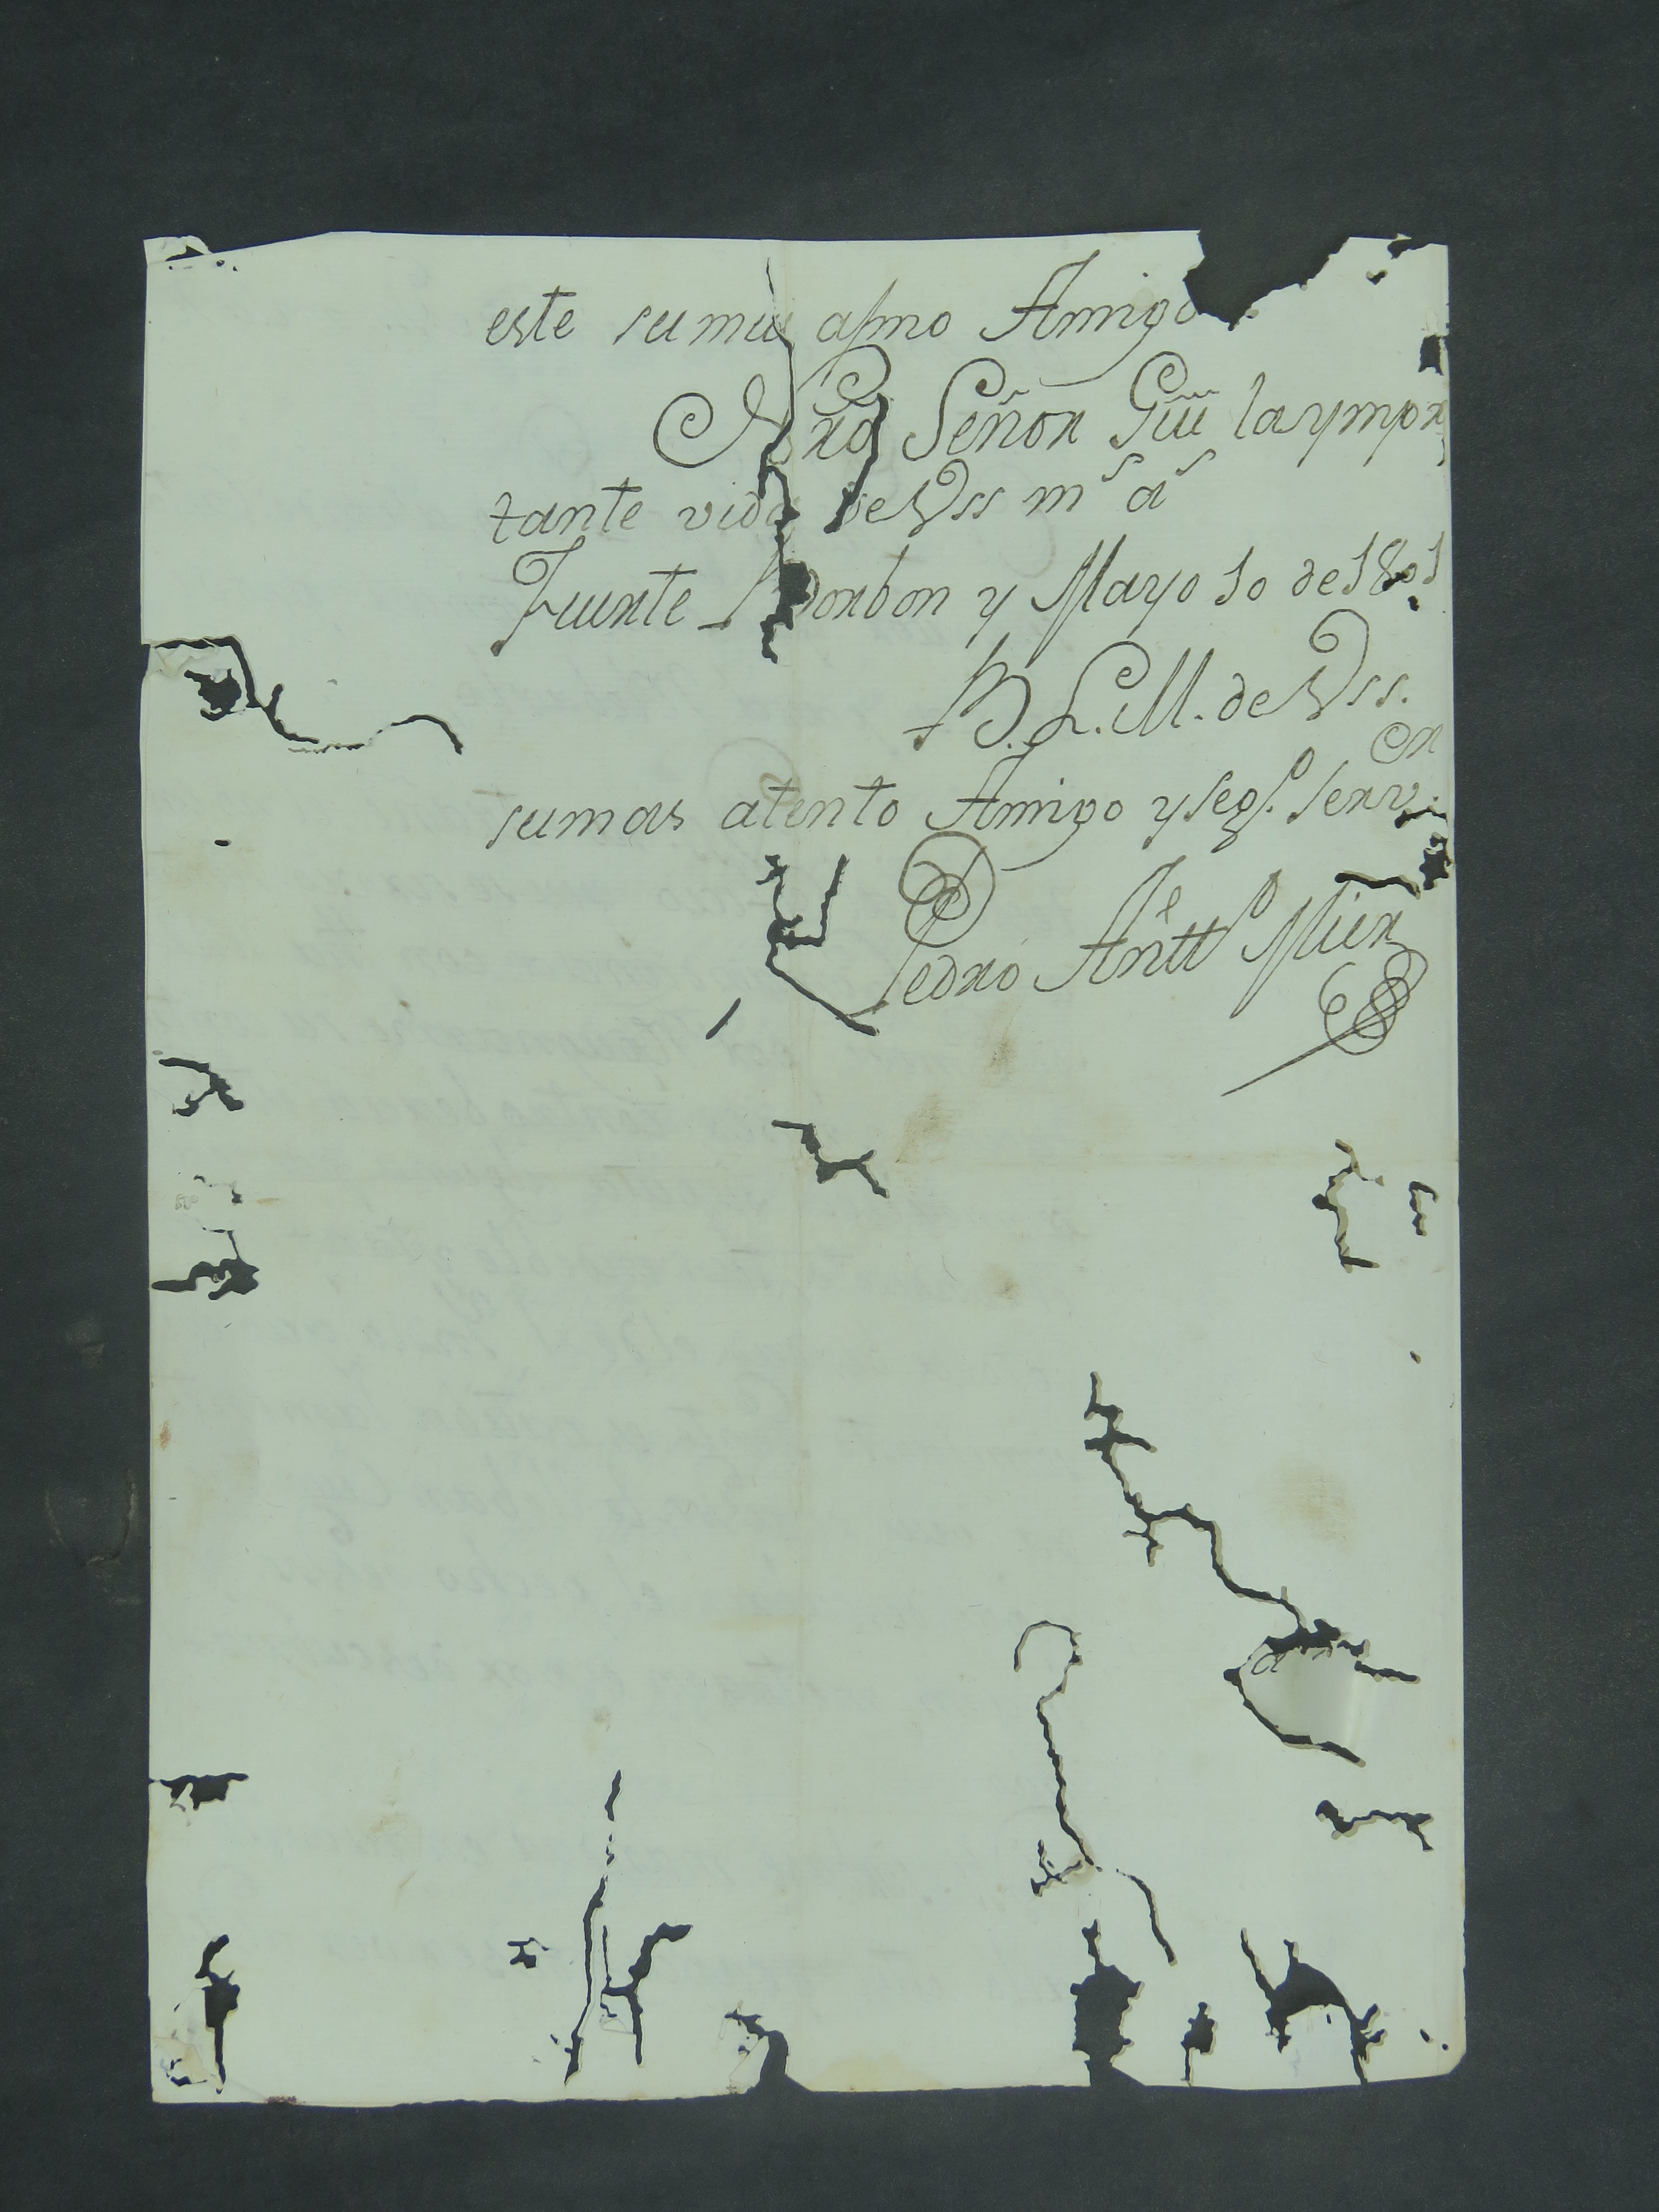 este su muy afmo Amigo
Nro Señor Gũe la ympor
tante vida de Vss mˢ aˢ
Fuerte Borbon y Mayo 10 de 1801
B. L. M. de Vss.
su mas atento Amigo y segº. servᵒʳ.
Pedro Anttº Mier